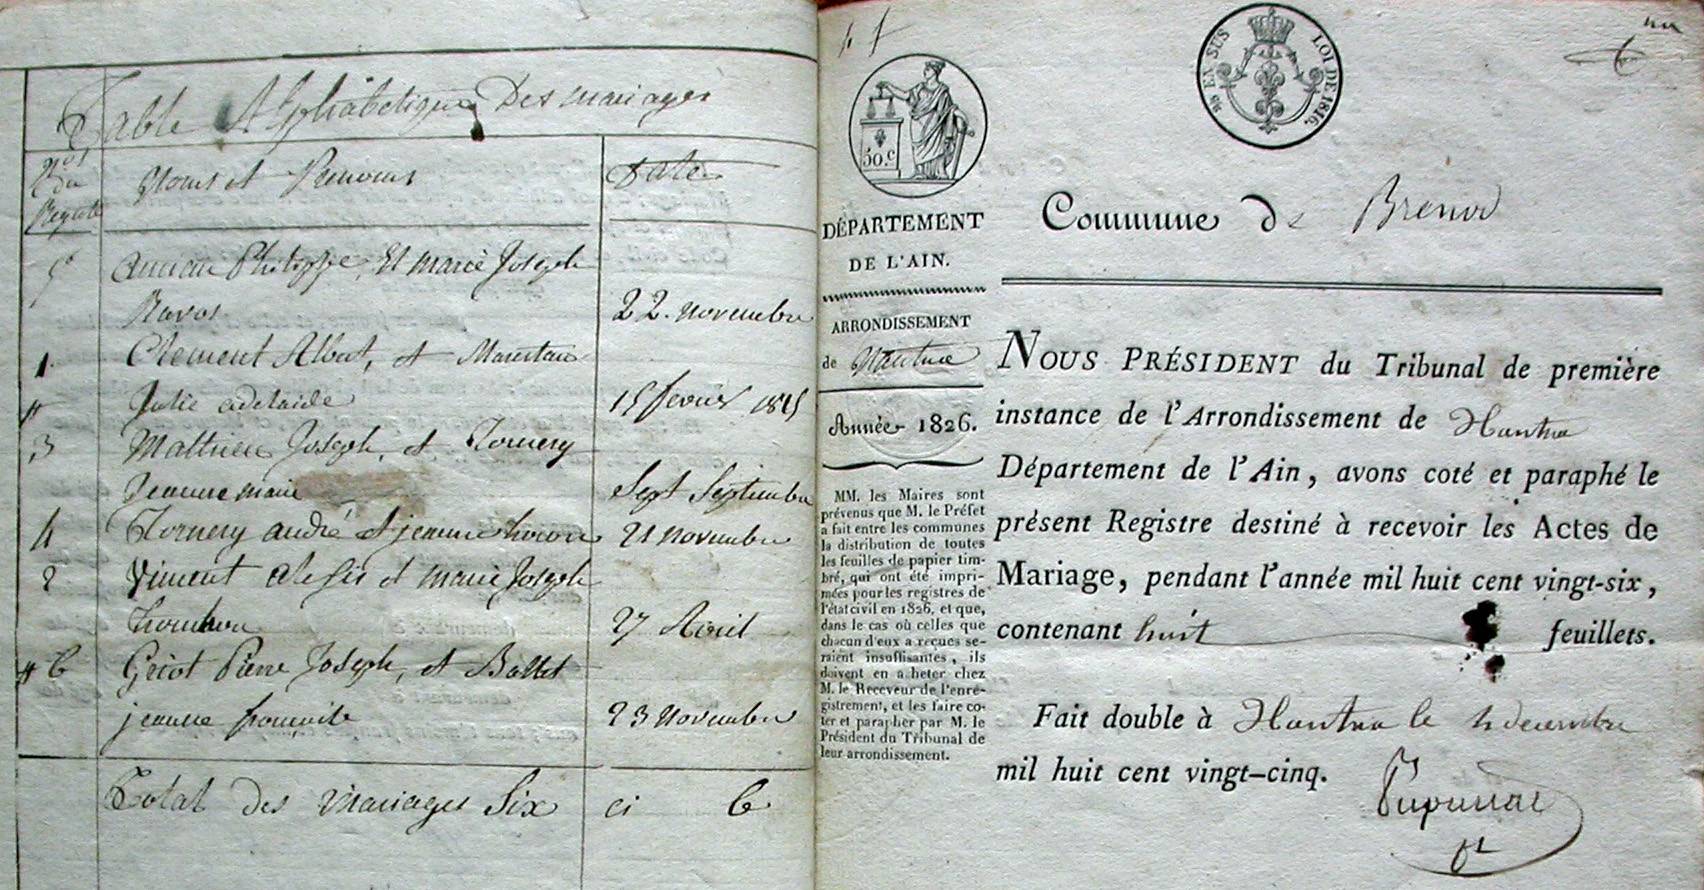 Table Alphabétique Des mariages
Nos du Registre
Noms et Prenoms
Date
5
Philippe, Et marie Joseph
Ravot
22 novembre
1
Clement Albert, et
Julie adelaide
15 fevrier 1825
3
Mathieu Joseph, et Tornery
Jeanne marie
Sept Septembre
4
Tornery andré et jeanne
21 novembre
2
Vincent alexis et marie Joseph
27 Avril
6
Pierre Joseph, et Ballet
jeanne
23 novembre
Total des Mariages Six
ci 6
50.C
EN SUS
LOI DE 1816.
DÉPARTEMENT
DE L'AIN.
ARRONDISSEMENT
de Nantua
Année 1826.
MM. les Maires sont
prévenus que M. le Préfet
a fait entre les communes
la distribution de toutes
les feuilles de papier tim-
bré, qui ont été impri-
mées pour les registres de
l'état civil en 1826, et que,
dans le cas où celles que
chacun d'eux a reçues se-
raient insuffisantes, ils
doivent en a heter chez
M. le Receveur de l'enre-
gistrement, et les faire co-
ter et parapher par M. le
Président du Tribunal de
leur arrondissement.
Commune de Brenod
NOUS PRÉSIDENT du Tribunal de première
instance de l'Arrondissement de Nantua
Département de l'Ain, avons coté et paraphé le
présent Registre destiné à recevoir les Actes de
Mariage, pendant l'année mil huit cent vingt-six,
contenant huit feuillets.
Fait double à Nantua le 1 decembre
mil huit cent vingt-cinq.